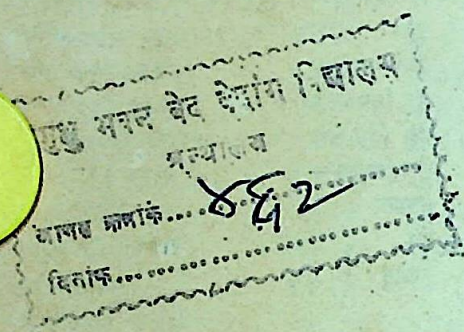 भवन वेद वेदांग विद्यालय
ग्रन्थालय
आगत क्रमांक.....४६२.....
दिनांक.....